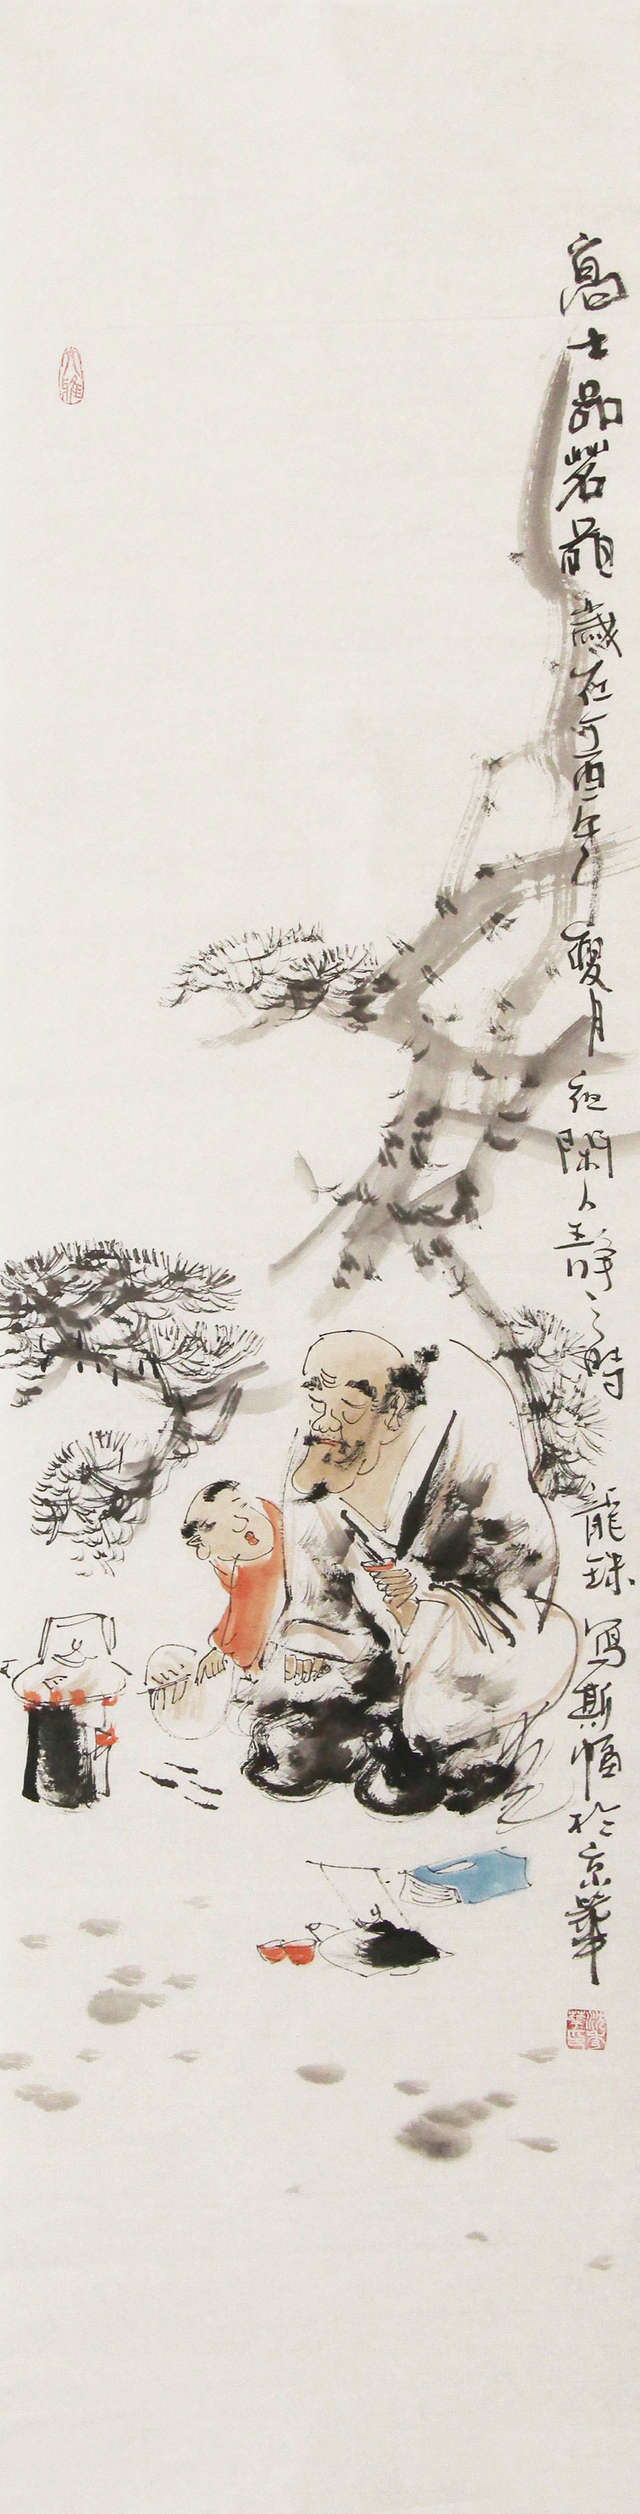 大雅
高士品茗 歲在丁酉年夏月夜闌人靜之時 龍珠寫斯幅於京華